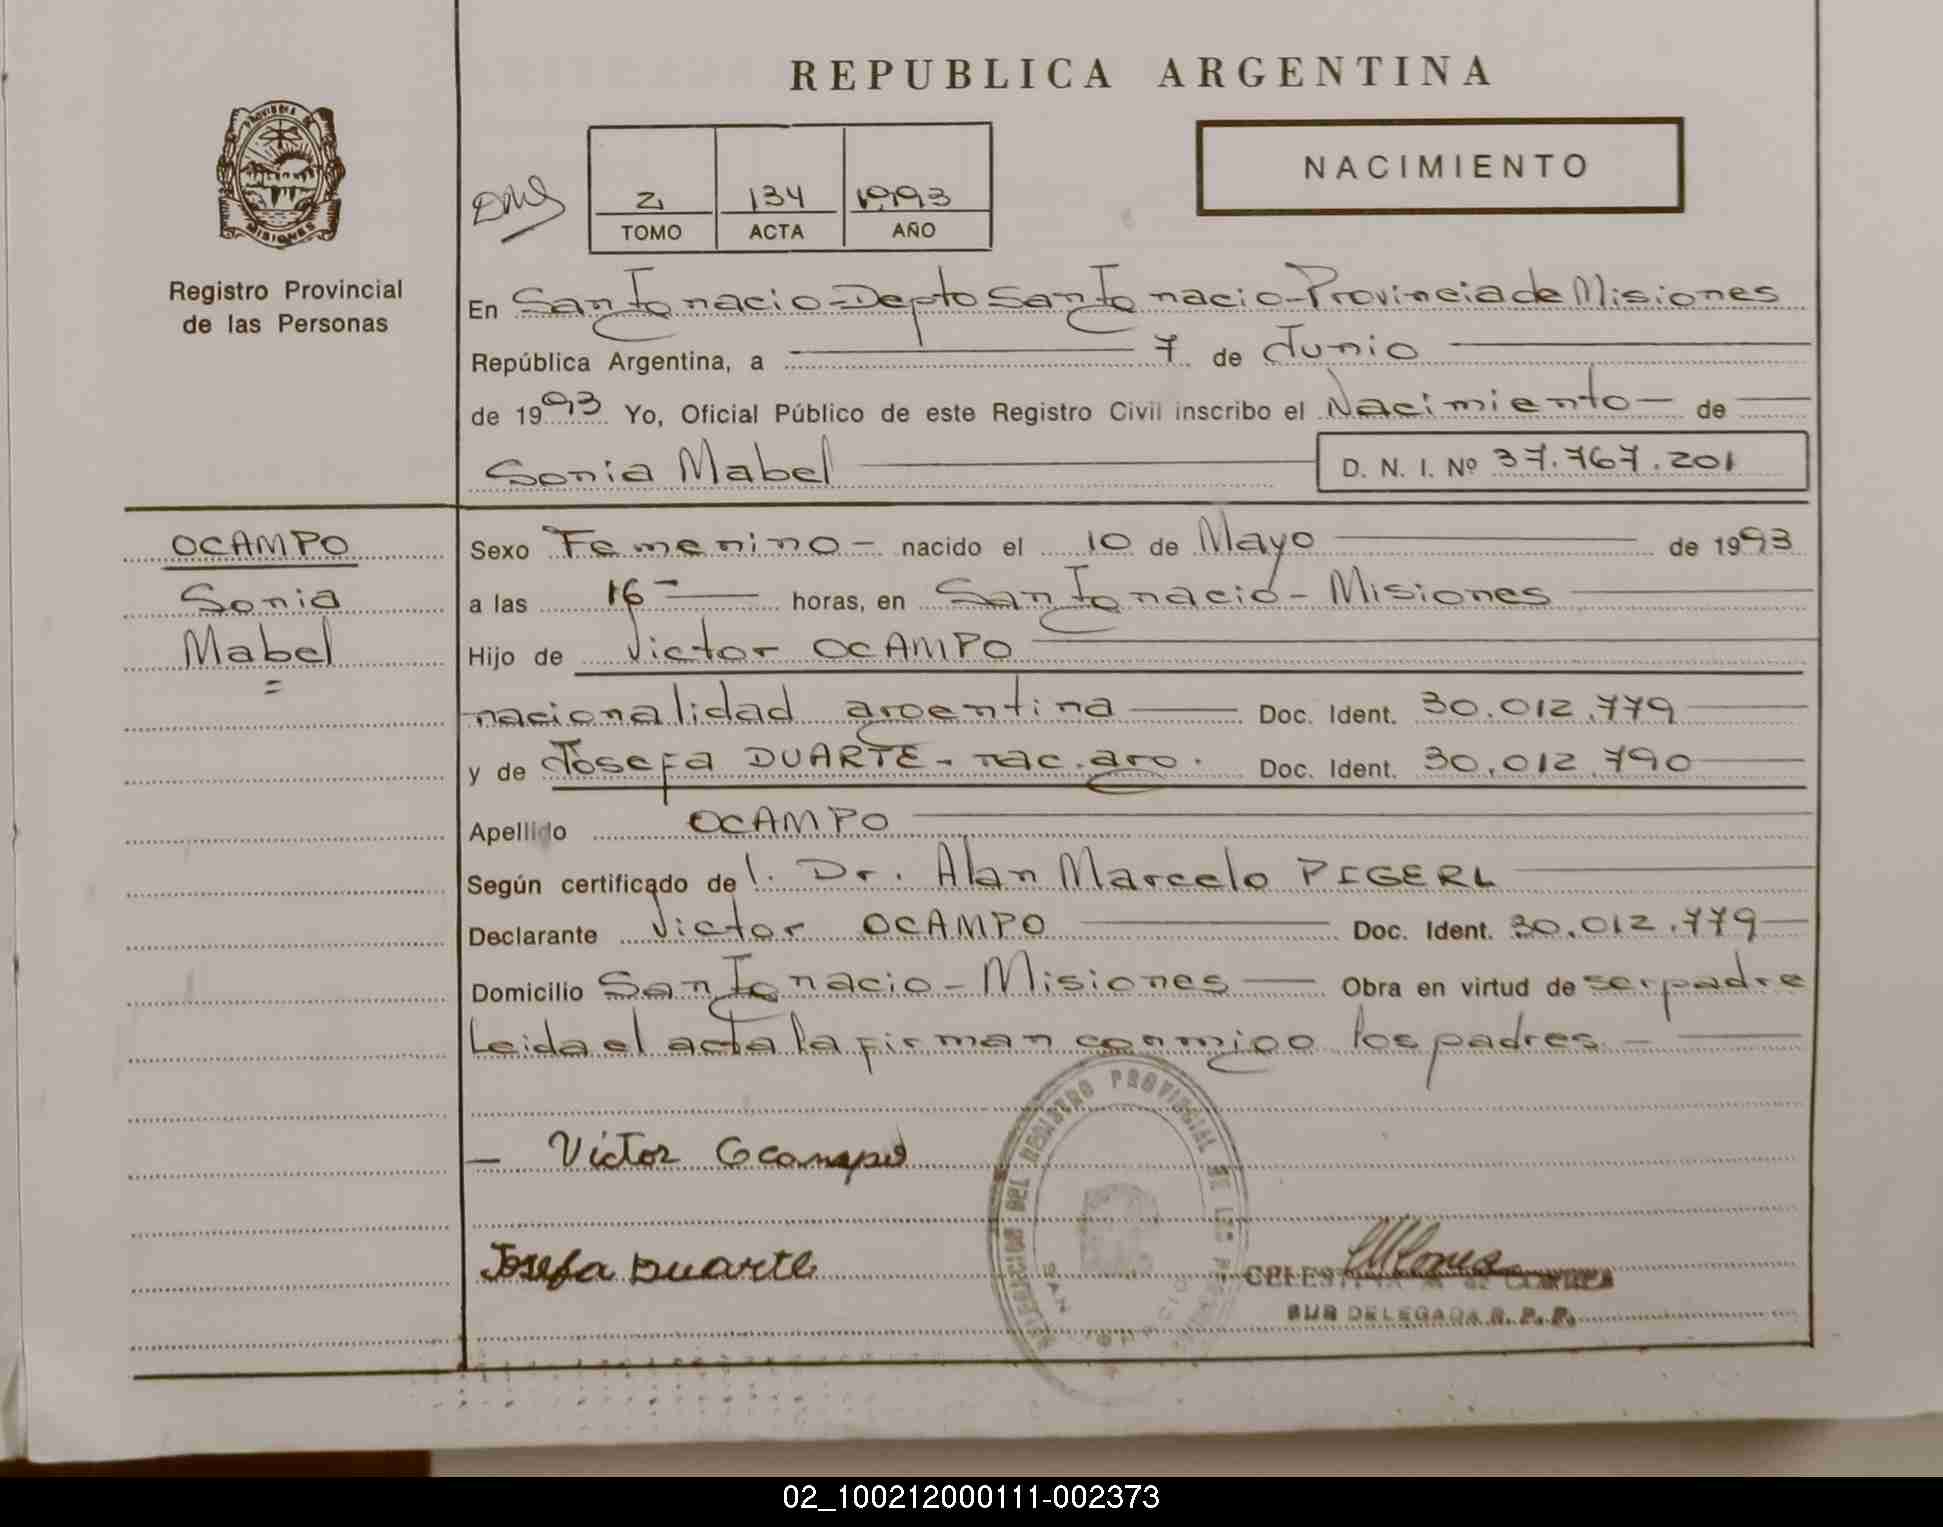 REPUBLICA ARGENTINA
PROVINCIA DE
MISIONES
Registro Provincial
de las Personas
NACIMIENTO
2 134 1993
TOMO ACTA AÑO
En San Ignacio - Depto San Ignacio - Provincia de Misiones
República Argentina, a 7 de Junio
de 1993 Yo, Oficial Público de este Registro Civil inscribo el Nacimiento - de
Sonia Mabel D. N. I. Nº 37.767.201
OCAMPO
Sonia
Mabel
=
Sexo Femenino - nacido el 10 de Mayo de 1993
a las 16 horas, en San Ignacio - Misiones
Hijo de Victor OCAMPO
nacionalidad argentina Doc. Ident. 30.012.779
y de Josefa DUARTE - nac. arg. Doc. Ident. 30.012.790
Apellido OCAMPO
Según certificado de l. Dr. Alan Marcelo PIGERL
Declarante Victor OCAMPO Doc. Ident. 30.012.779
Domicilio San Ignacio - Misiones Obra en virtud de ser padre
Leida el acta la firman conmigo los padres -
DEL REGISTRO PROVINCIAL DE LAS
SAN IGNACIO
- Victor Ocampo
Josefa Duarte
SUB DELEGADA R. P. P.
02_100212000111-002373